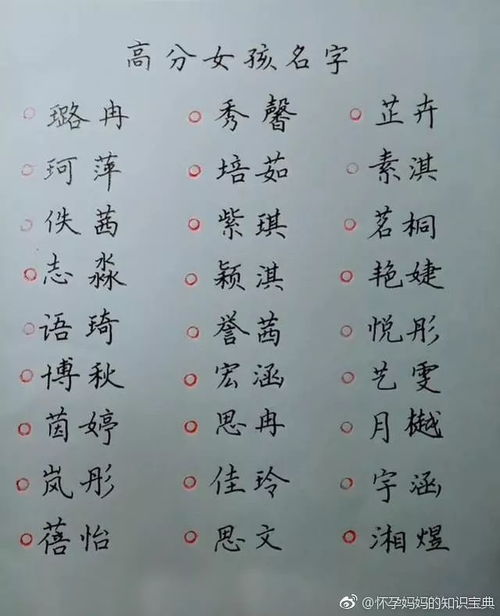 高分女孩名字
璐冉 秀馨 芷卉
珂萍 培茹 素淇
佚茜 紫琪 茗桐
志淼 颖淇 艳婕
语琦 誉茜 悦彤
博秋 宏涵 艺雯
茵婷 思冉 月樾
岚彤 佳玲 宇涵
蓓怡 思文 湘煜
@怀孕妈妈的知识宝典